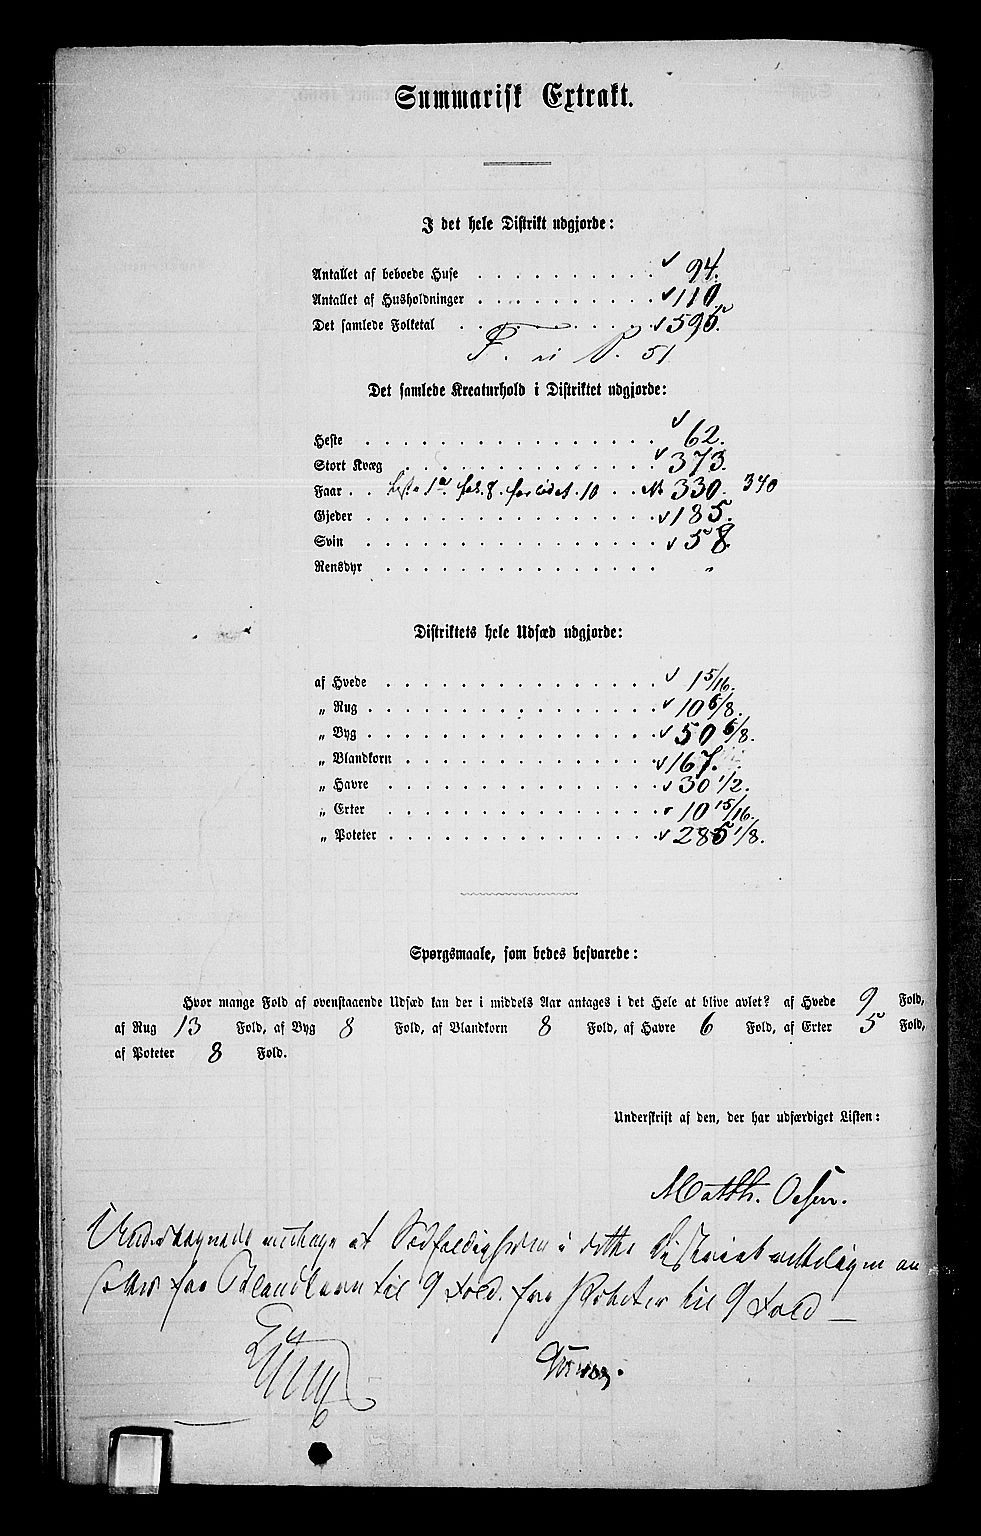 Summarisk Extrakt.
I det hele Distrikt udgjorde:
Antallet af beboede Huse . . . . . . . . . . 94.
Antallet af Husholdninger . . . . . . . . . . 110
Det samlede Folketal . . . . . . . . . . 595.
51
Det samlede Kreaturhold i Distriktet udgjorde:
Heste . . . . . . . . . . . . . . . . 62.
Stort Kvæg . . . . . . . . . . . . . . 373.
Faar . . 330. 340
Gjeder . . . . . . . . . . . . . . . . 185.
Svin . . . . . . . . . . . . . . . . 58
Rensdyr . . . . . . . . . . . . . . . "
Distriktets hele Udsæd udgjorde:
af Hvede . . . . . . . . . . . . . . . 1 5/16.
„ Rug . . . . . . . . . . . . . . . . 10 6/8.
„ Byg . . . . . . . . . . . . . . . . 50 6/8.
„ Blandkorn . . . . . . . . . . . . . . 167.
„ Havre . . . . . . . . . . . . . . . 30 1/2.
„ Erter . . . . . . . . . . . . . . . 10 15/16.
„ Poteter . . . . . . . . . . . . . . . 285 1/8.
Spørgsmaale, som bedes besvarede:
Hvor mange Fold af ovenstaaende Udsæd kan der i middels Aar antages i det Hele at blive avlet? af Hvede 9 Fold,
af Rug 13 Fold, af Byg 8 Fold, af Blandkorn 8 Fold, af Havre 6 Fold, af Erter 5 Fold,
af Poteter 8 Fold.
Underskrift af den, der har udfærdiget Listen:
Matth. Oesen.
Undertegnede antage at i dette
for Blandkorn til 9 Fold. for Poteter til 9 Fold —